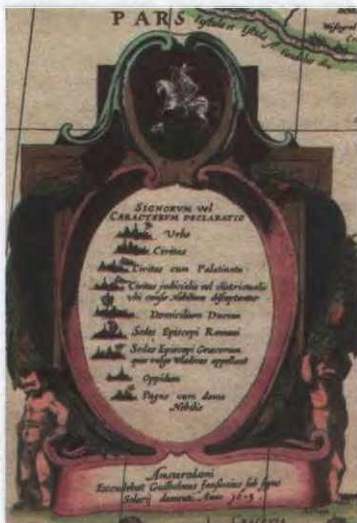 PARS
SIGNORVM vel
CARACTERVM DECLARATIO
Urbs
Civitas
Civitas cum Palatinatu
Civitas judicialis vel districtualis
ubi causæ Nobilium
Domicilium Ducum
Sedes Episcopi Romani
Sedes Episcopi Græcorum
quos vulgo Wladicas appellant
Oppidum
Pagus cum domo
Nobilis
Amsterodami
Excudebat Guilhelmus Janssonius sub signo
Solarij deaurati Anno 1613